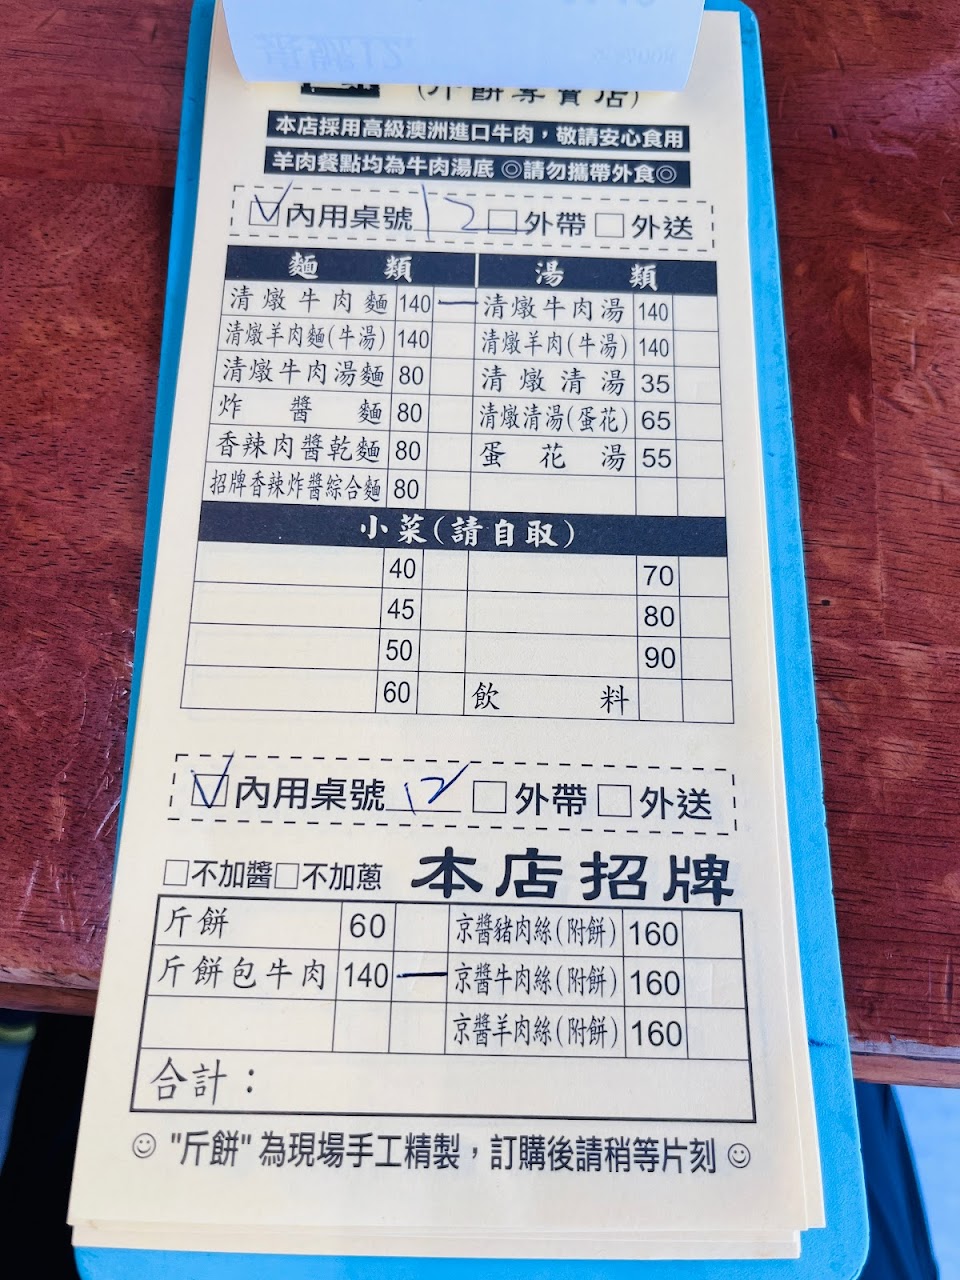 (斤餅專賣店)
本店採用高級澳洲進口牛肉，敬請安心食用
羊肉餐點均為牛肉湯底 ◎請勿攜帶外食◎
☑內用桌號 12 □外帶 □外送
麵 類 湯 類
清燉牛肉麵 140 一 清燉牛肉湯 140
清燉羊肉麵(牛湯) 140 清燉羊肉(牛湯) 140
清燉牛肉湯麵 80 清燉清湯 35
炸醬麵 80 清燉清湯(蛋花) 65
香辣肉醬乾麵 80 蛋花湯 55
招牌香辣炸醬綜合麵 80
小菜(請自取)
40 70
45 80
50 90
60 飲料
☑內用桌號 12 □外帶 □外送
□不加醬□不加蔥 本店招牌
斤餅 60 京醬豬肉絲(附餅) 160
斤餅包牛肉 140 一 京醬牛肉絲(附餅) 160
京醬羊肉絲(附餅) 160
合計：
☺ "斤餅" 為現場手工精製，訂購後請稍等片刻 ☺